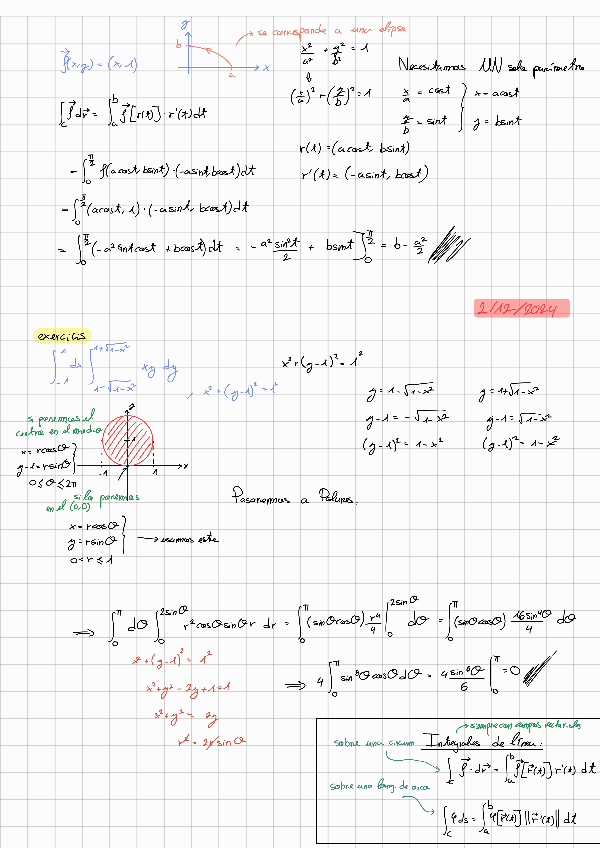 y
b
a
x
→ se corresponde a una elipse
f(x,y) = (x,1)
x²/a² + y²/b² = 1
(x/a)² + (y/b)² = 1
Necesitamos UN solo parámetro
x/a = cost } x = acost
y/b = sint } y = bsint
∫_C f dr = ∫_a^b f[r(t)] · r'(t) dt
r(t) = (acost, bsint)
= ∫_0^{π/2} f(acost, bsint) · (-asint, bcost) dt
r'(t) = (-asint, bcost)
= ∫_0^{π/2} (acost, 1) · (-asint, bcost) dt
= ∫_0^{π/2} (-a² sint cost + bcost) dt = -a² sin²t/2 + bsint ]_0^{π/2} = b - a²/2
2/12/2024
exercicis
∫_{-1}^{1} dx ∫_{1-√(1-x²)}^{1+√(1-x²)} xy dy , x² + (y-1)² = 1
x² + (y-1)² = 1²
y = 1-√(1-x²)
y = 1+√(1-x²)
y-1 = -√(1-x²)
y-1 = √(1-x²)
(y-1)² = 1-x²
(y-1)² = 1-x²
si ponemos el
centro en el medio
x = rcosθ
y-1 = rsinθ
0 ≤ θ ≤ 2π
2
1
-1
1
x
si la ponemos
en el (0,0)
x = rcosθ
y = rsinθ → usamos este
0 < r ≤ 1
Pasaremos a Polares.
⇒ ∫_0^π dθ ∫_0^{2sinθ} r² cosθ sinθ r dr = ∫_0^π (sinθcosθ) r⁴/4 |_0^{2sinθ} dθ = ∫_0^π (sinθcosθ) 16sin⁴θ/4 dθ
x² + (y-1)² = 1²
x² + y² - 2y + 1 = 1
x² + y² = 2y
r² = 2r sinθ
⇒ 4 ∫_0^π sin⁵θ cosθ dθ = 4 sin⁶θ/6 |_0^π = 0
→ siempre con campos vectoriales
sobre una circum
Integrales de línea:
∫_C f · dr = ∫_a^b f[r(t)] r'(t) dt
sobre una long. de arco
∫_C φ ds = ∫_a^b φ[r(t)] ||r'(t)|| dt